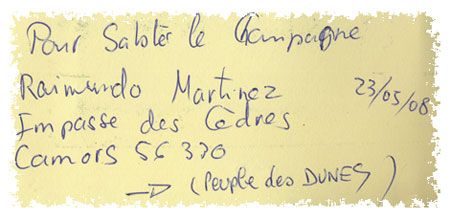 Pour Saboter le Campagne
Raimundo Martinez 23/05/08
Impasse des Cèdres
Camors 56 330
→ (Peuple des DUNES)